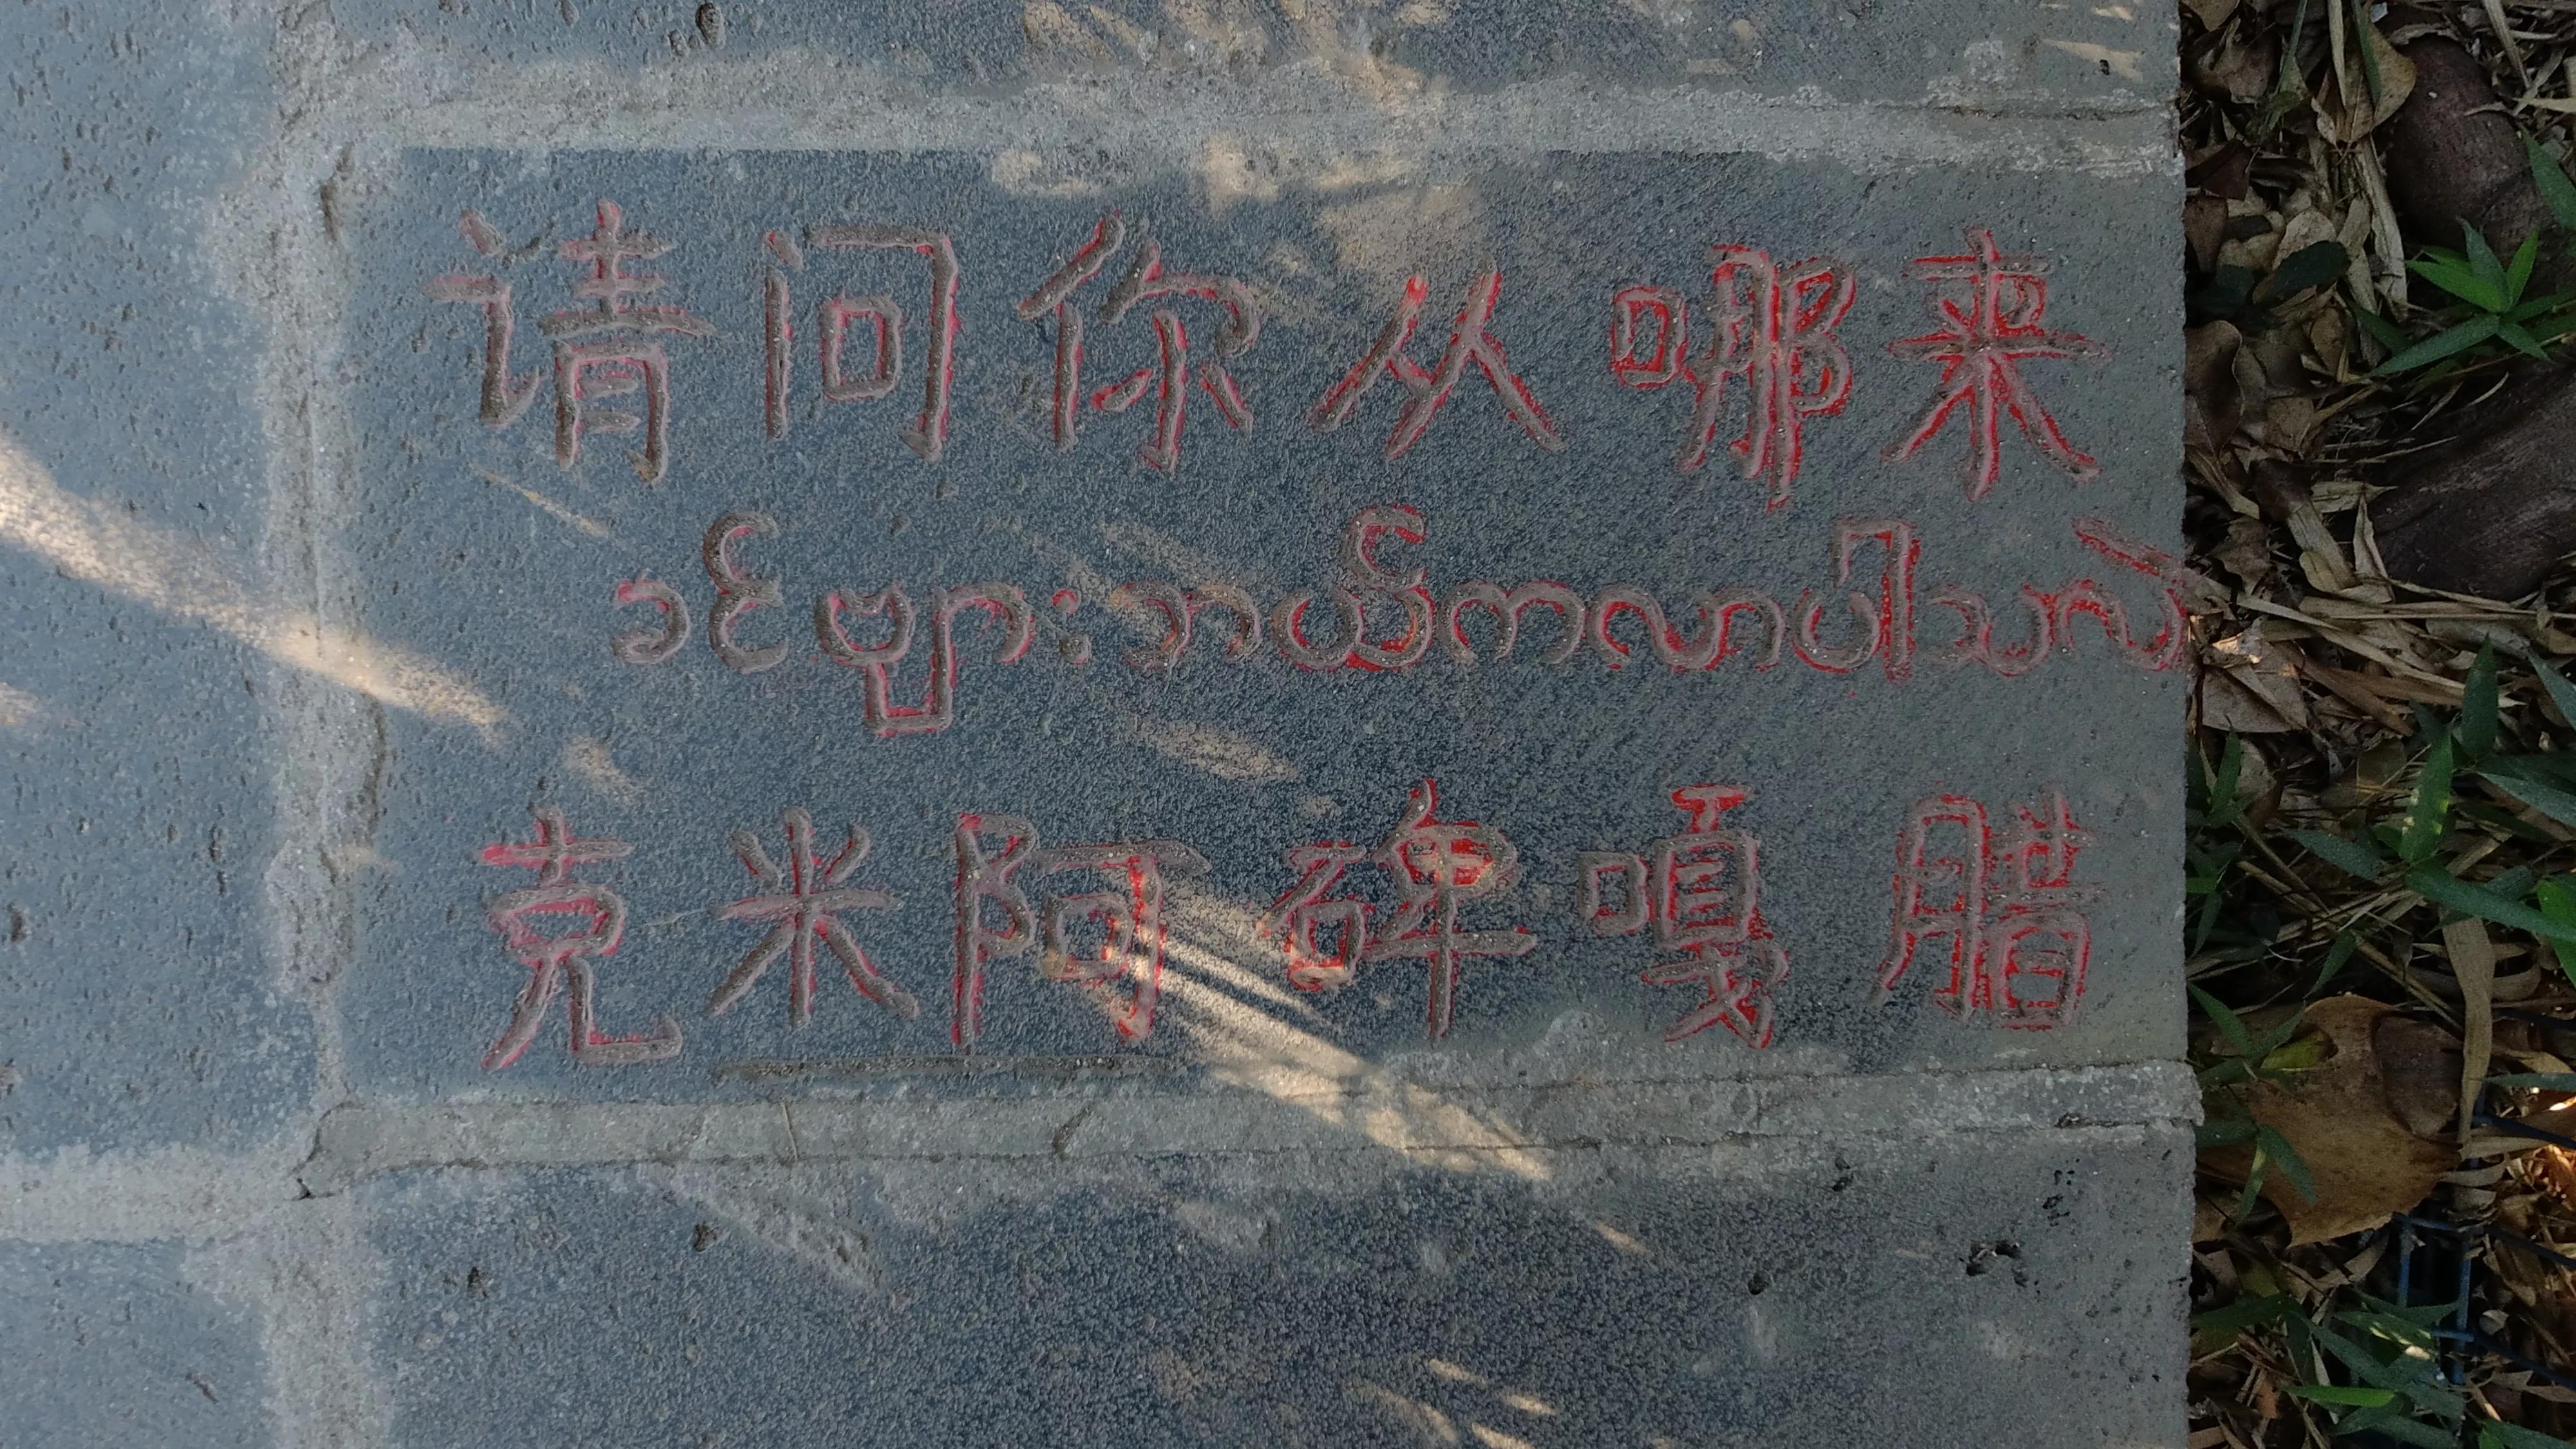 请问你从哪来
ခင်ဗျားဘယ်ကလာပါသလဲ
克米阿碑嘎腊